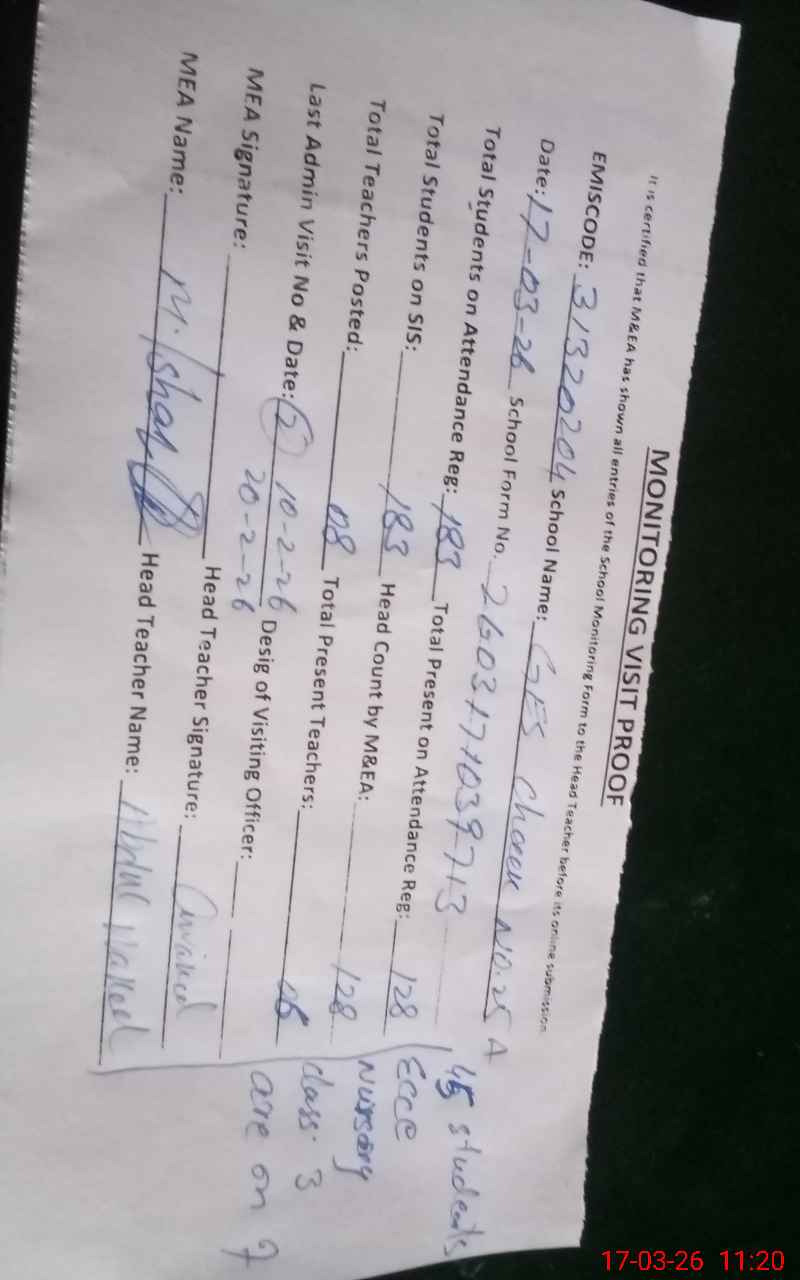 MONITORING VISIT PROOF
It is certified that M&EA has shown all entries of the School Monitoring Form to the Head Teacher before its online submission
EMISCODE: 31320204 School Name: GES Chack NO.25 A
Date: 17-03-26 School Form No. 2603171039713
Total Students on Attendance Reg: 183 Total Present on Attendance Reg: 128
Total Students on SIS: 183 Head Count by M&EA: 128
Total Teachers Posted: 08 Total Present Teachers: 06
Last Admin Visit No & Date: (2) 10-2-26 Desig of Visiting Officer:
20-2-26
MEA Signature: Head Teacher Signature:
MEA Name: M. Head Teacher Name: Abdul
45 students
Ecce
Nursery
class. 3
are on
17-03-26 11:20